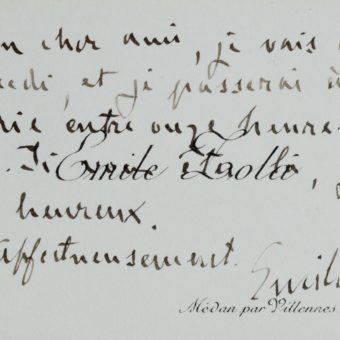 n cher ami, je vais
redi, et je passerai à
rie, entre onze heure
. Si
Emile Zola
heureux.
affectueusement.
Emile
Médan par Villennes